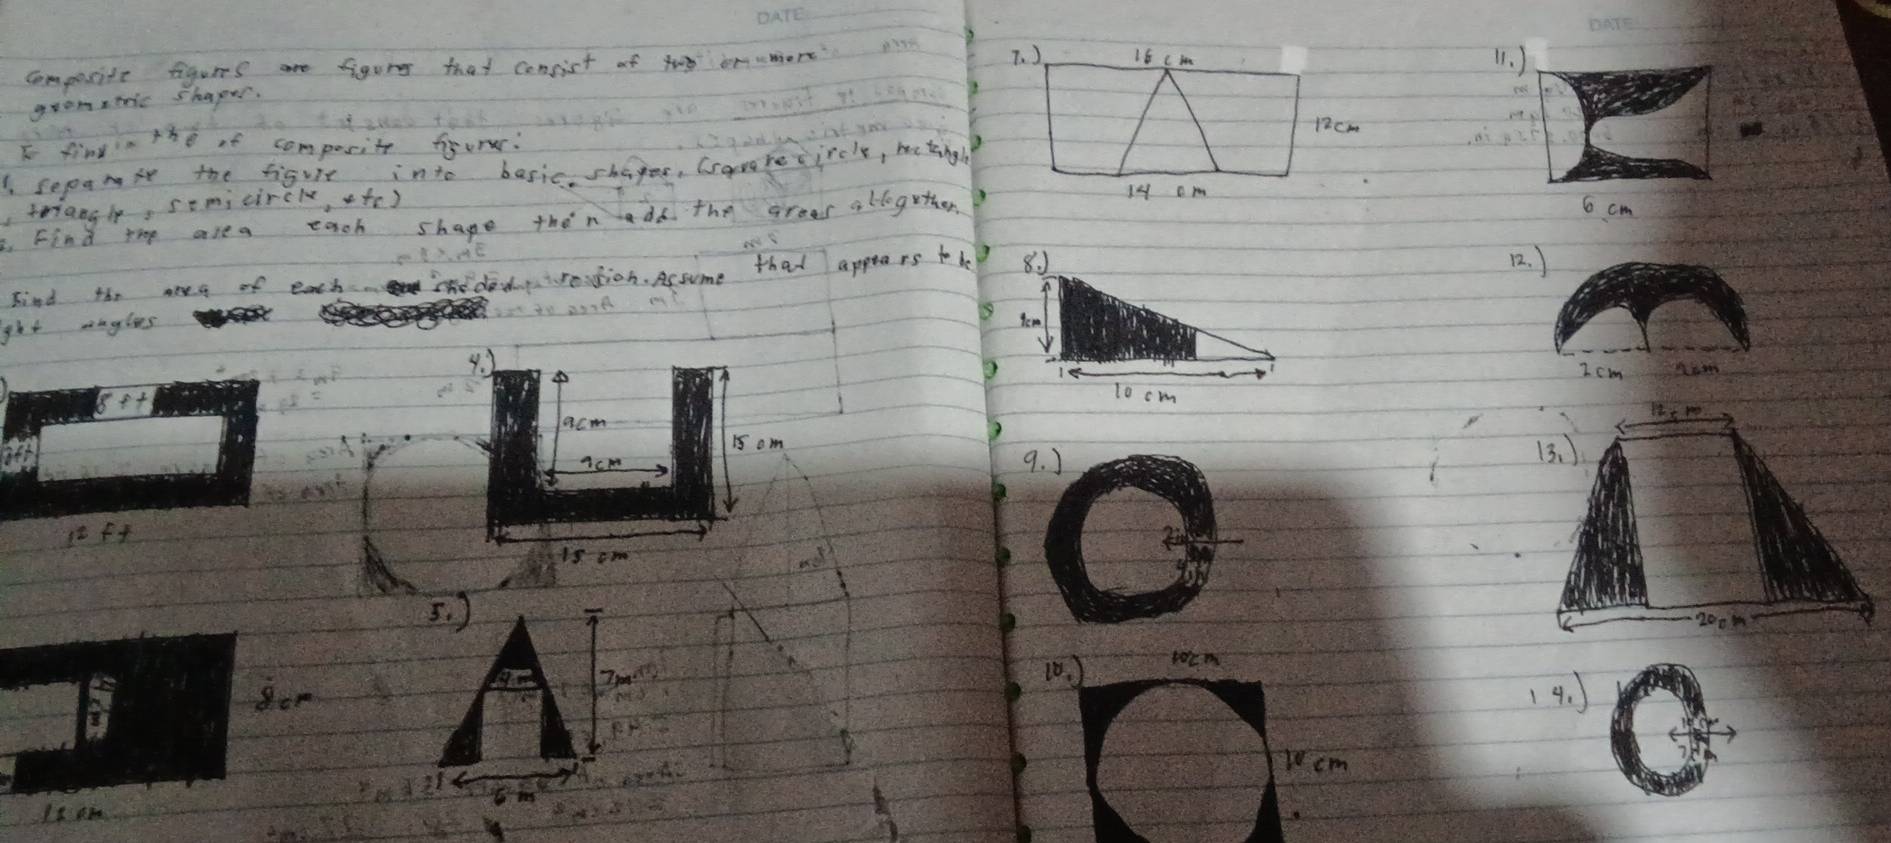 DATE
composite figures are figures that consist of two or more
geometric shapes.
To find the of composite figures:
1. separate the figure into basic shapes. (square circle, rectangle
, triangle, semicircle, etc)
2. Find the area each shape then add the areas altogether.
Find the area of each shaded region. Assume that appears to be
ght angles
8 ft
12 ft
4.)
9cm
9cm
15 cm
15 cm
8 cm
12 cm
5.)
7m
6 m
7.)
16 cm
12cm
14 cm
8.)
9cm
10 cm
9.)
10.)
10cm
10 cm
DATE
11.)
6 cm
12.)
2cm
2cm
13.)
12cm
20cm
14.)